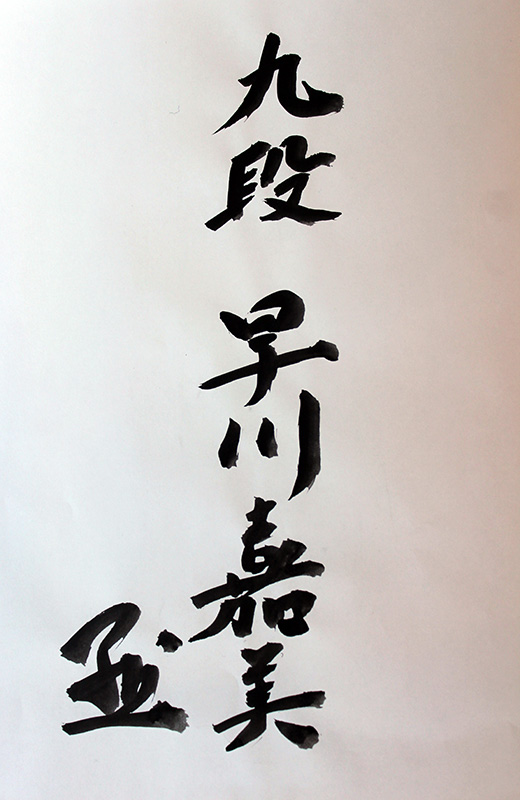 九段 早川嘉美